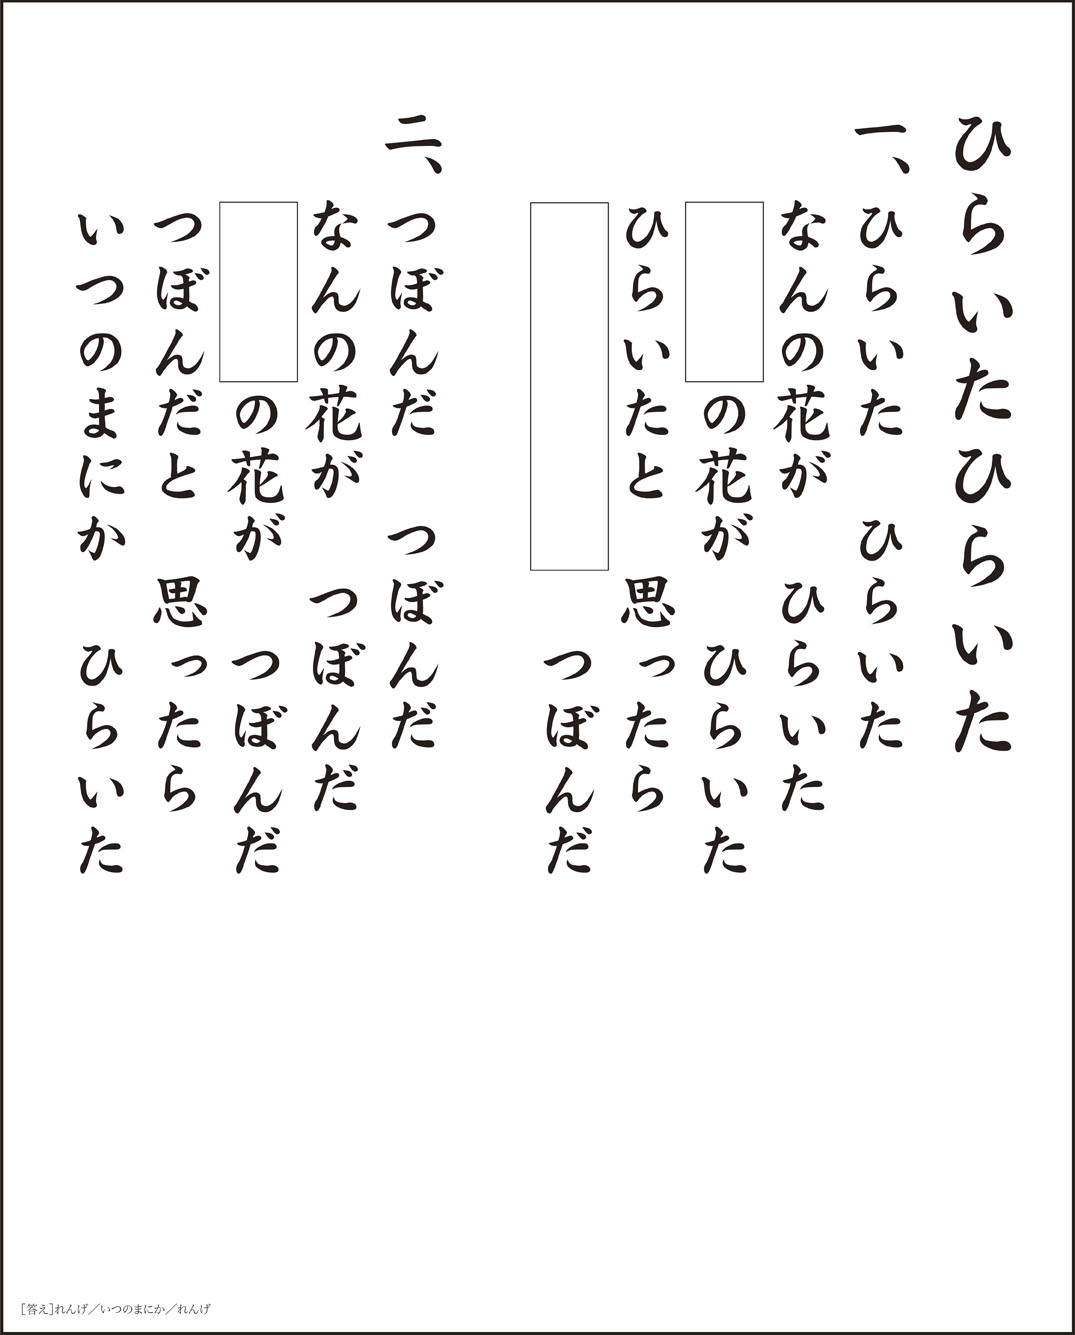 ひらいたひらいた
一、ひらいた　ひらいた
なんの花が　ひらいた
の花が　ひらいた
ひらいたと　思ったら
つぼんだ
二、つぼんだ　つぼんだ
なんの花が　つぼんだ
の花が　つぼんだ
つぼんだと　思ったら
いつのまにか　ひらいた
［答え］れんげ／いつのまにか／れんげ